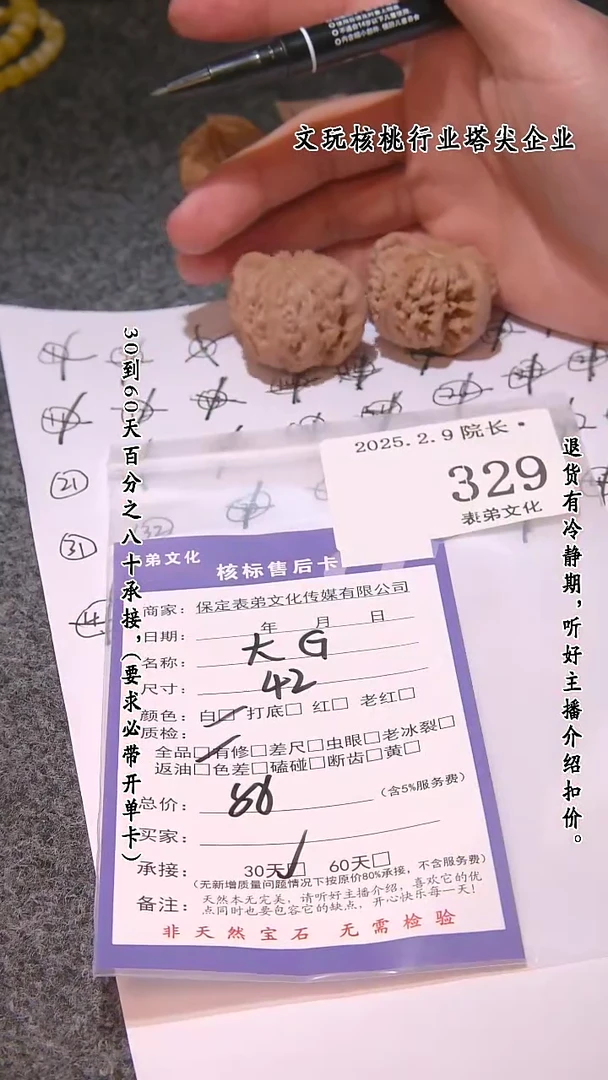 文玩核桃行业塔尖企业
30到60天百分之八十承接，(要求必带开单卡)
退货有冷静期，听好主播介绍扣价。
2025.2.9 院长·
329
表弟文化
弟文化
核标售后卡
商家：保定表弟文化传媒有限公司
日期： 年 月 日
名称：大G
尺寸：42
颜色：白□ 打底□ 红□ 老红□
质检：
全品□有修□差尺□虫眼□老冰裂□
返油□色差□磕碰□断齿□黄□
总价： （含5%服务费）
买家：
承接： 30天□ 60天□
（无新增质量问题情况下按原价80%承接，不含服务费）
备注：天然本无完美，请听好主播介绍，喜欢它的优
点同时也要包容它的缺点，开心快乐每一天！
非天然宝石 无需检验
21
31
32